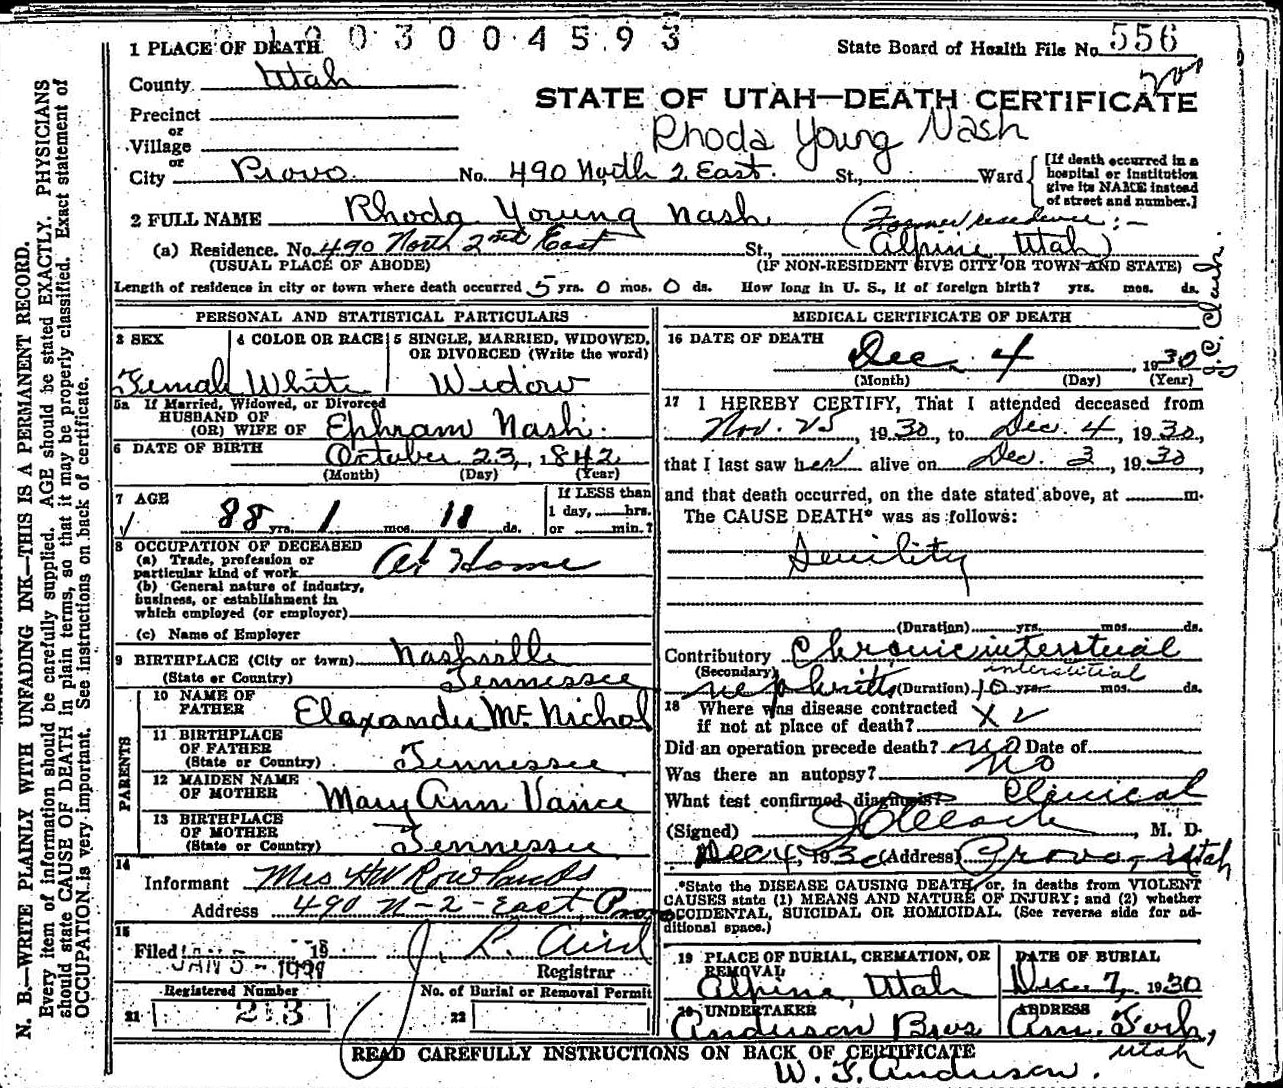 1003004593
1 PLACE OF DEATH
State Board of Health File No. 556
County Utah
STATE OF UTAH—DEATH CERTIFICATE
Precinct
or
Village
Rhoda Young Nash
or
City Provo No. 490 North 2 East. St., Ward
[If death occurred in a hospital or institution give its NAME instead of street and number.]
2 FULL NAME Rhoda Young Nash (Former residence:-
(a) Residence. No. 490 North 2nd East St., Alpine, Utah)
(USUAL PLACE OF ABODE) (IF NON-RESIDENT GIVE CITY OR TOWN AND STATE)
Length of residence in city or town where death occurred 5 yrs. 0 mos. 0 ds. How long in U. S., if of foreign birth? yrs. mos. ds.
PERSONAL AND STATISTICAL PARTICULARS
3 SEX 4 COLOR OR RACE 5 SINGLE, MARRIED, WIDOWED, OR DIVORCED (Write the word)
Female White Widow
5a If Married, Widowed, or Divorced
HUSBAND OF
(OR) WIFE OF Ephram Nash.
6 DATE OF BIRTH October 23, 1842
(Month) (Day) (Year)
7 AGE If LESS than
88 yrs. 1 mos. 11 ds. 1 day, hrs.
or min.?
8 OCCUPATION OF DECEASED
(a) Trade, profession or
particular kind of work At Home
(b) General nature of industry,
business, or establishment in
which employed (or employer)
(c) Name of Employer
9 BIRTHPLACE (City or town) Nashville
(State or Country) Tennessee
PARENTS
10 NAME OF
FATHER Elaxander McNichol
11 BIRTHPLACE
OF FATHER
(State or Country) Tennessee
12 MAIDEN NAME
OF MOTHER Mary Ann Vance
13 BIRTHPLACE
OF MOTHER
(State or Country) Tennessee
14
Informant Mrs HW Rowlands
Address 490 N-2-East, Provo
15
Filed 19
JAN 5 - 1931
J. R. Aird
Registrar
Registered Number No. of Burial or Removal Permit
21 213 22
MEDICAL CERTIFICATE OF DEATH
16 DATE OF DEATH
Dec. 4, 1930
(Month) (Day) (Year)
17 I HEREBY CERTIFY, That I attended deceased from
Nov. 25, 1930, to Dec. 4, 1930,
that I last saw her alive on Dec. 3, 1930
and that death occurred, on the date stated above, at m.
The CAUSE DEATH* was as follows:
Senility
(Duration) yrs. mos. ds.
Contributory Chronic intersteual
(Secondary) interstitial
nephritis (Duration) 10 yrs. mos. ds.
18 Where was disease contracted
if not at place of death?
Did an operation precede death? no Date of
Was there an autopsy? No
What test confirmed diagnosis? Clinical
(Signed) , M. D.
Dec 4, 1930 (Address) Provo, Utah
*State the DISEASE CAUSING DEATH, or, in deaths from VIOLENT
CAUSES state (1) MEANS AND NATURE OF INJURY; and (2) whether
ACCIDENTAL, SUICIDAL OR HOMICIDAL. (See reverse side for ad-
ditional space.)
19 PLACE OF BURIAL, CREMATION, OR REMOVAL DATE OF BURIAL
Alpine, Utah Dec. 7, 1930
20 UNDERTAKER ADDRESS
Anderson Bros Am. Fork,
Utah
READ CAREFULLY INSTRUCTIONS ON BACK OF CERTIFICATE
W. F. Anderson.
N. B.—WRITE PLAINLY WITH UNFADING INK—THIS IS A PERMANENT RECORD.
Every item of information should be carefully supplied. AGE should be stated EXACTLY. PHYSICIANS
should state CAUSE OF DEATH in plain terms, so that it may be properly classified. Exact statement of
OCCUPATION is very important. See instructions on back of certificate.